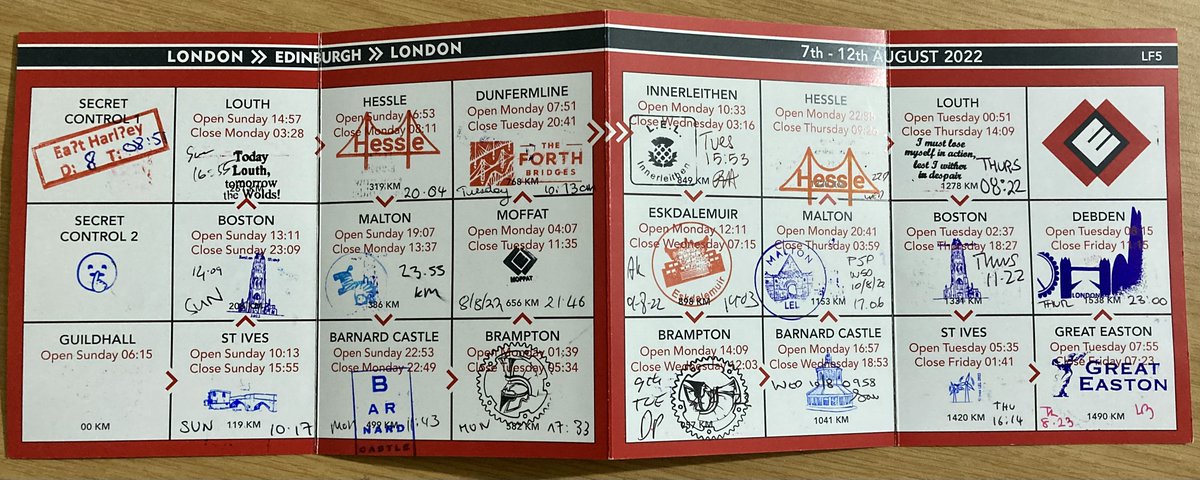 LONDON >> EDINBURGH >> LONDON
7th - 12th AUGUST 2022
LF5
SECRET
CONTROL 1
Ea?t Harl?ey
D: 8 T: 08:5
LOUTH
Open Sunday 14:57
Close Monday 03:28
Sun
16:55
Today
Louth,
tomorrow
the Wolds!
HESSLE
Open Sunday 16:53
Close Monday 08:11
Hessle
319 KM
20.04
DUNFERMLINE
Open Monday 07:51
Close Tuesday 20:41
THE
FORTH
BRIDGES
768 KM
Tuesday
INNERLEITHEN
Open Monday 10:33
Close Wednesday 03:16
L.E.L
Innerleithen
TUES
15:53
849 KM
HESSLE
Open Monday 22:
Close Thursday 09:26
Hessle
LOUTH
Open Tuesday 00:51
Close Thursday 14:09
I must lose
myself in action,
lest I wither
in despair
THURS
08:22
1278 KM
E
SECRET
CONTROL 2
BOSTON
Open Sunday 13:11
Close Sunday 23:09
14:09
SUN
MALTON
Open Sunday 19:07
Close Monday 13:37
23.55
KM
386 KM
MOFFAT
Open Monday 04:07
Close Tuesday 11:35
MOFFAT
8/8/22
656 KM
21.46
ESKDALEMUIR
Open Monday 12:11
Close Wednesday 07:15
Eskdalemuir
9-8-22
898 KM
MALTON
Open Monday 20:41
Close Thursday 03:59
MALTON
LEL
WED
10/8/22
17.06
1153 KM
BOSTON
Open Tuesday 02:37
Close Thursday 18:27
Thurs
11.22
DEBDEN
Close Friday
LONDON
1538 KM
23:00
GUILDHALL
Open Sunday 06:15
00 KM
ST IVES
Open Sunday 10:13
Close Sunday 15:55
SUN
119 KM
10.17
BARNARD CASTLE
Open Sunday 22:53
Close Monday 22:49
B
AR
NARD
CASTLE
Mon
BRAMPTON
Open Monday 01:39
Close Tuesday 05:34
MON
582 KM
17:33
BRAMPTON
Open Monday 14:09
Close Wednesday 12:03
9th
TUE
BARNARD CASTLE
Open Monday 16:57
Close Wednesday 18:53
WED 10/8 09.58
1041 KM
ST IVES
Open Tuesday 05:35
Close Friday 01:41
THU
16.14
1420 KM
GREAT EASTON
Open Tuesday 07:55
Close Friday 07:23
GREAT
EASTON
1490 KM